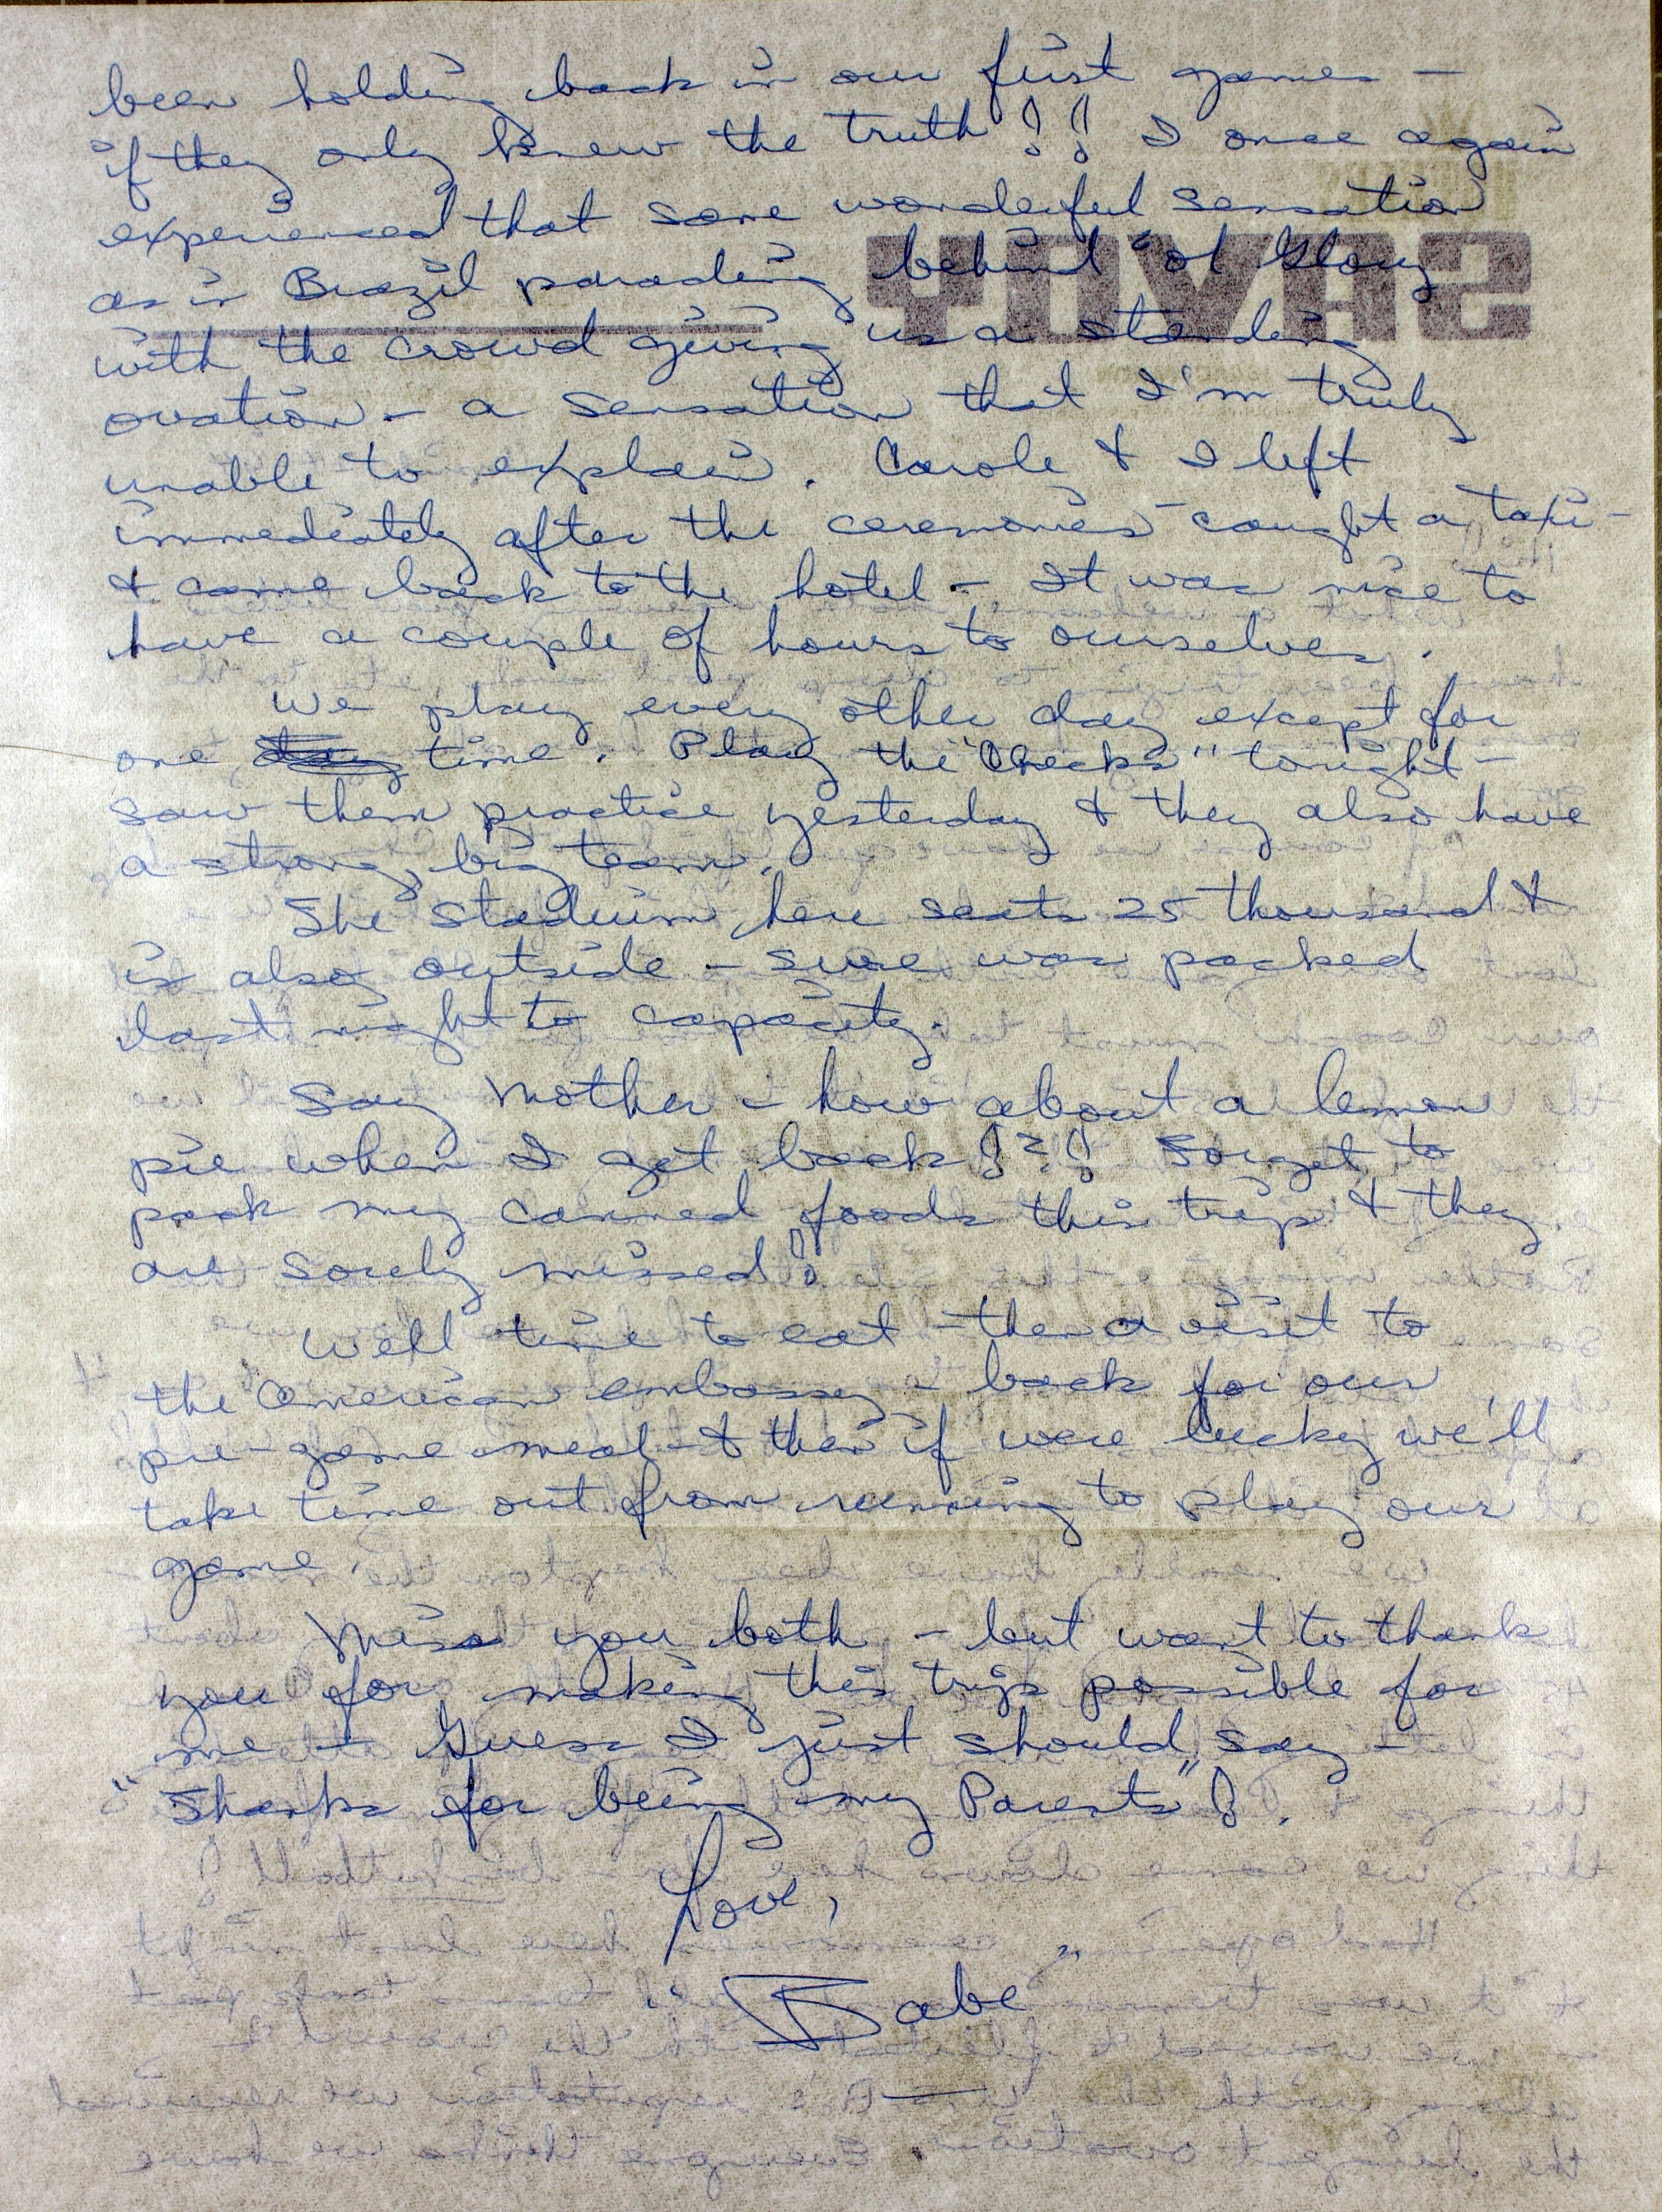 been holding back in our first games -
if they only knew the truth!! I once again
experienced that same wonderful sensation
as in Brazil parading behind "ol Glory
with the crowd giving us a standing
ovation - a sensation that I'm truly
unable to explain. Carole & I left
immediately after the ceremonies - caught a taxi -
& came back to the hotel - It was nice to
have a couple of hours to ourselves.
We play every other day except for
one time. Play the "Checks" tonight -
saw them practice yesterday & they also have
a strong, big team.
The stadium here seats 25 thousand &
is also outside - sure was packed
last night to capacity.
Say Mother - how about a lemon
pie when I get back!?! Forget to
pack my canned foods this trip & they
are sorely missed!
Well time to eat - then a visit to
the American embassy - back for our
pre-game meal - & then if were lucky we'll
take time out from running to play our
game.
Miss you both - but want to thank
you for making this trip possible for
me - Guess I just should say -
"Thanks for being my Parents"!.
Love,
"Babe"
SAVOY